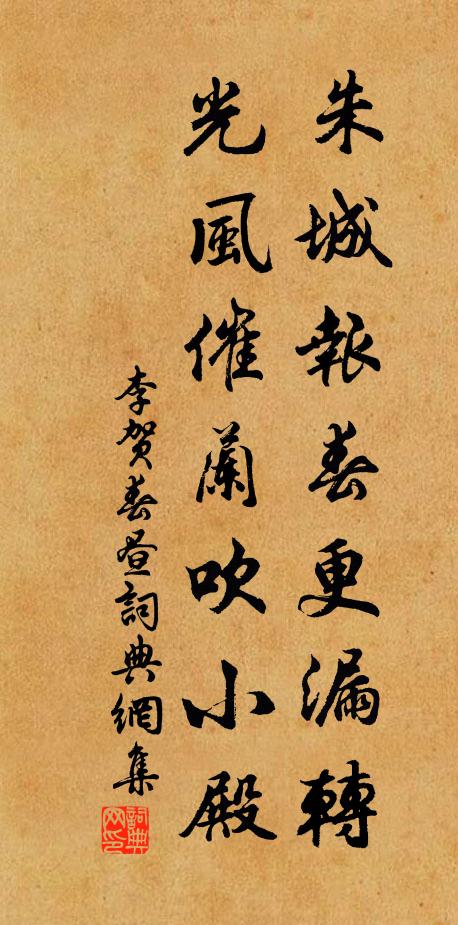 朱城報春更漏轉
光風催蘭吹小殿
李賀春晝詞典網集
詞典網印